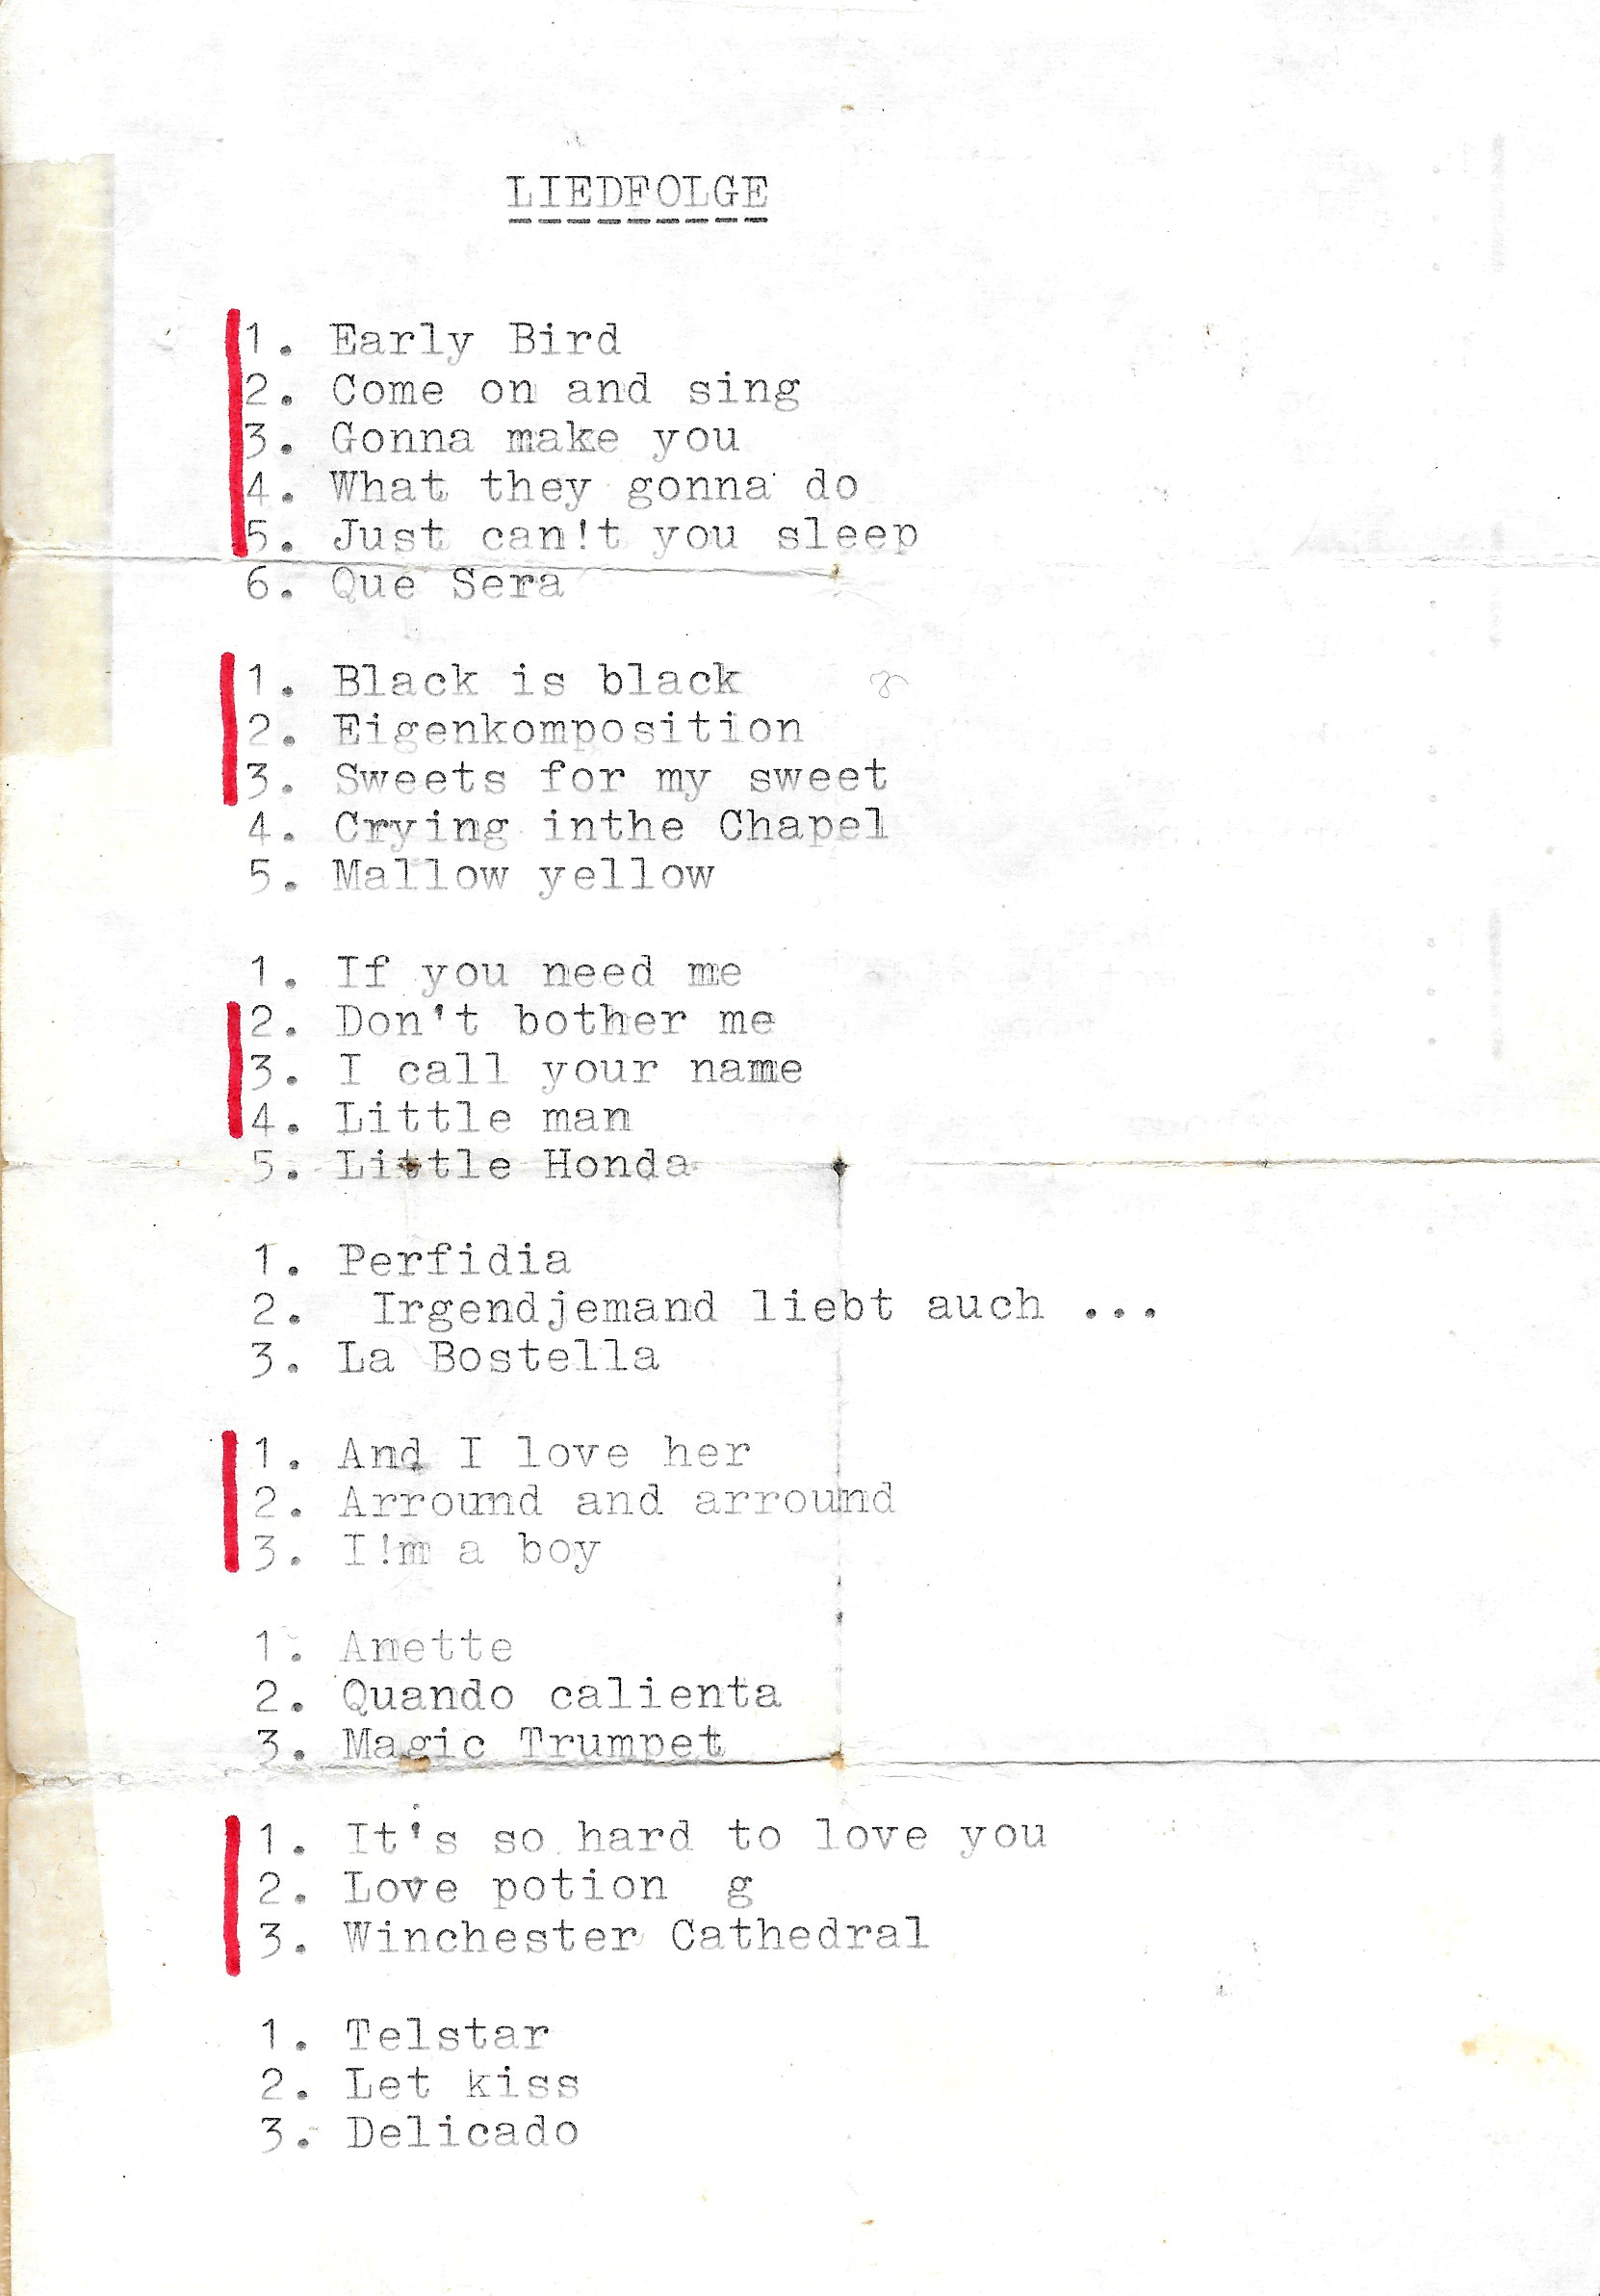 LIEDFOLGE
1. Early Bird
2. Come on and sing
3. Gonna make you
4. What they gonna do
5. Just can!t you sleep
6. Que Sera
1. Black is black
2. Eigenkomposition
3. Sweets for my sweet
4. Crying inthe Chapel
5. Mallow yellow
1. If you need me
2. Don't bother me
3. I call your name
4. Little man
5. Little Honda
1. Perfidia
2. Irgendjemand liebt auch ...
3. La Bostella
1. And I love her
2. Arround and arround
3. I!m a boy
1. Anette
2. Quando calienta
3. Magic Trumpet
1. It's so hard to love you
2. Love potion g
3. Winchester Cathedral
1. Telstar
2. Let kiss
3. Delicado